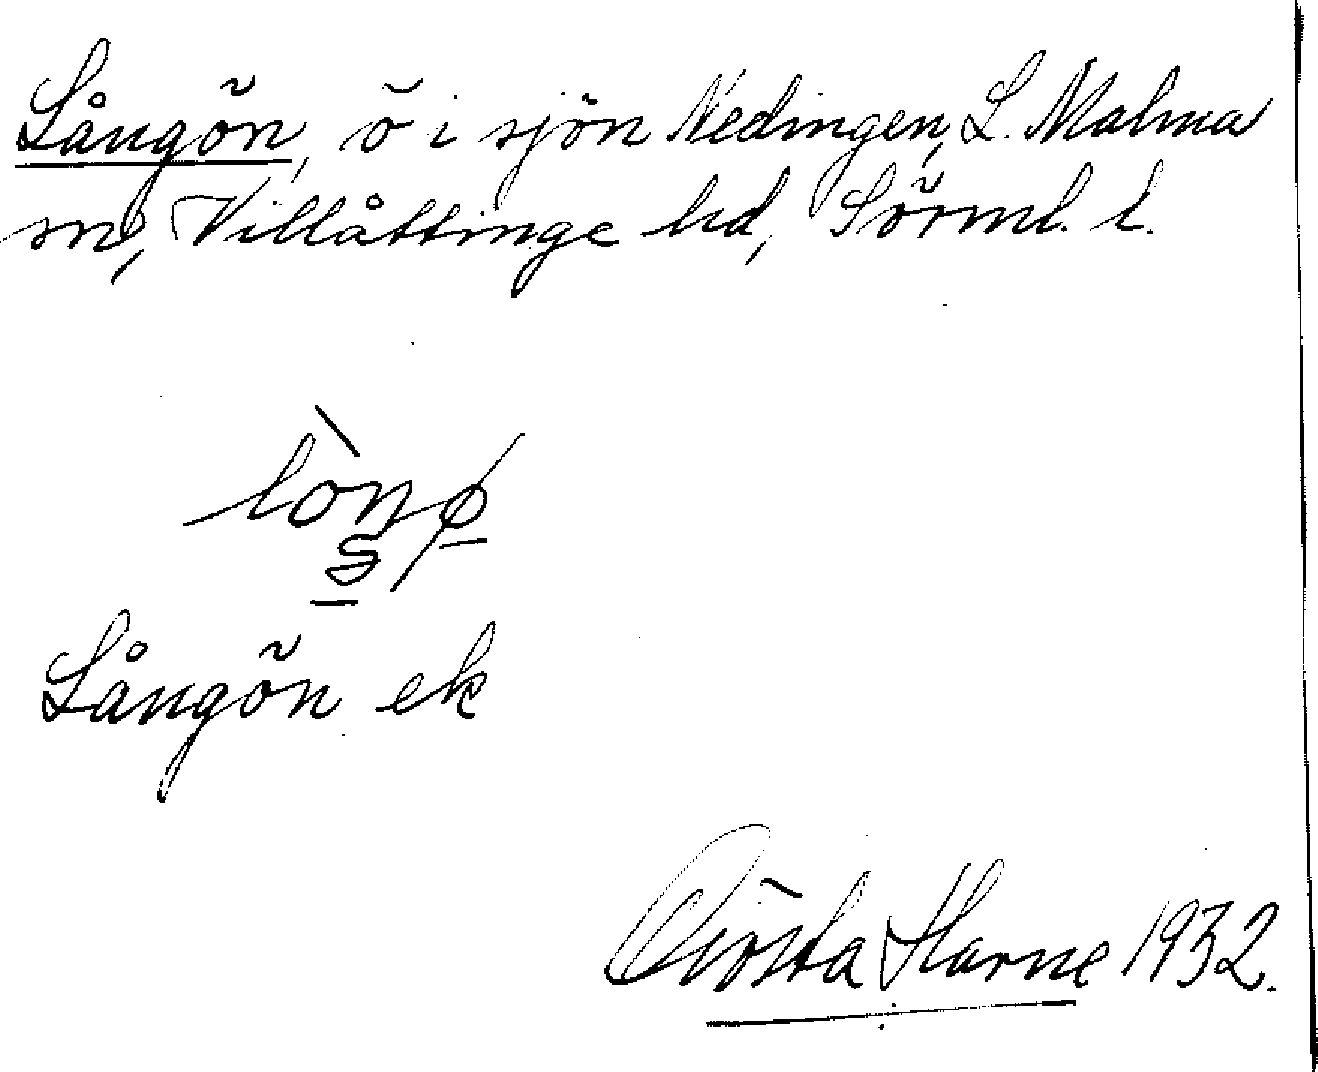 Långön, ö i sjön Nedingen, L. Malma
sn, Villåttinge hd, Sörml. l.
Långön ek
Gösta Harne 1932.